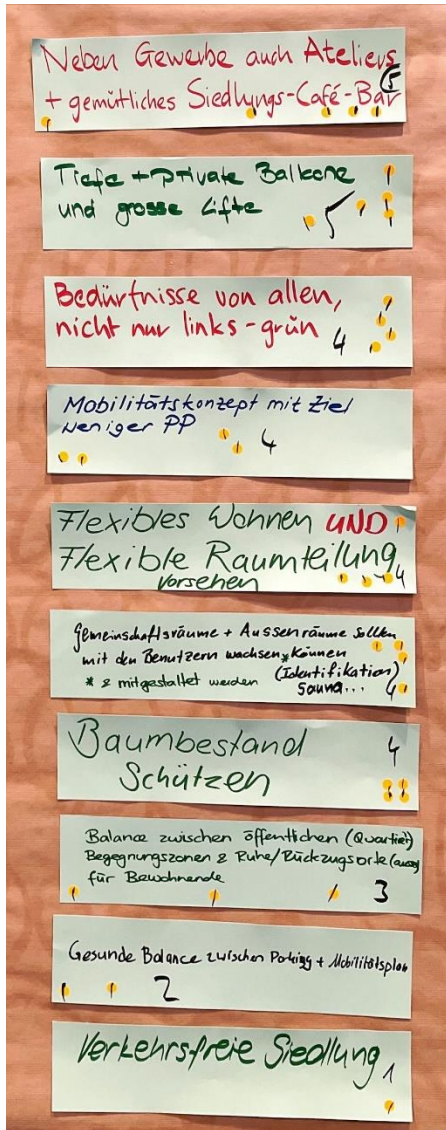 Neben Gewerbe auch Ateliers
+ gemütliches Siedlungs-Café-Bar
5
Tiefe + private Balkone
und grosse Lifte
5
Bedürfnisse von allen,
nicht nur links-grün
4
Mobilitätskonzept mit Ziel
weniger PP
4
Flexibles Wohnen UND
Flexible Raumteilung
vorsehen
4
Gemeinschaftsräume + Aussenräume sollen
mit den Benutzern wachsen* können
* & mitgestaltet werden (Identifikation)
Sauna...
4
Baumbestand
Schützen
4
Balance zwischen öffentlichen (Quartier)
Begegnungszonen & Ruhe/Rückzugsorte
für Bewohnende
3
Gesunde Balance zwischen Parking + Mobilitätsplan
2
Verkehrsfreie Siedlung
1